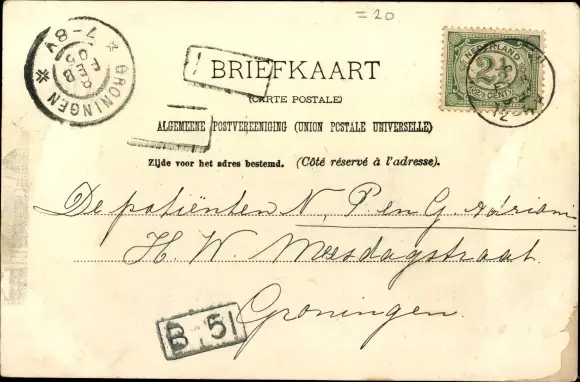 = 20
GRONINGEN
7-8V
8 FEB 05
NEDERLAND
2½
CENT
BRIEFKAART
(CARTE POSTALE)
ALGEMEENE POSTVEREENIGING (UNION POSTALE UNIVERSELLE)
Zijde voor het adres bestemd. (Côté réservé à l'adresse).
De patiënten N, P en G. Adriani
H. W. Mesdagstraat
Groningen.
B 51